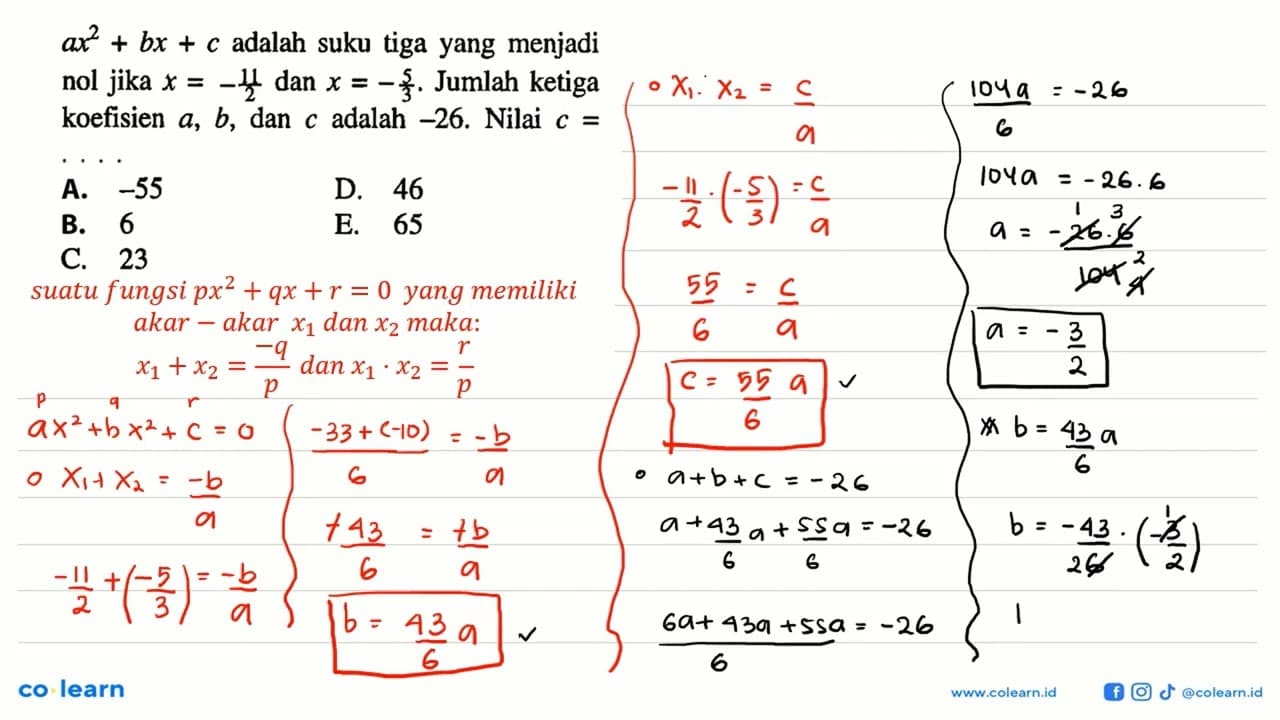 ax² + bx + c adalah suku tiga yang menjadi
nol jika x = -11/2 dan x = -5/3. Jumlah ketiga
koefisien a, b, dan c adalah –26. Nilai c =
. . . .
A. –55 D. 46
B. 6 E. 65
C. 23
suatu fungsi px² + qx + r = 0 yang memiliki
akar – akar x₁ dan x₂ maka:
x₁ + x₂ = -q/p dan x₁ · x₂ = r/p
p q r
ax² + bx² + c = 0
o x₁ + x₂ = -b/a
-11/2 + (-5/3) = -b/a
-33 + (-10) / 6 = -b/a
+43/6 = +b/a
b = 43/6 a ✓
o x₁ . x₂ = c/a
-11/2 . (-5/3) = c/a
55/6 = c/a
c = 55/6 a ✓
o a + b + c = -26
a + 43/6 a + 55/6 a = -26
6a + 43a + 55a / 6 = -26
104a/6 = -26
104a = -26.6
a = -26.6/104
1 3
4 2
a = -3/2
b = 43/6 a
b = -43/26 . (-3/2)
1
co learn
www.colearn.id @colearn.id